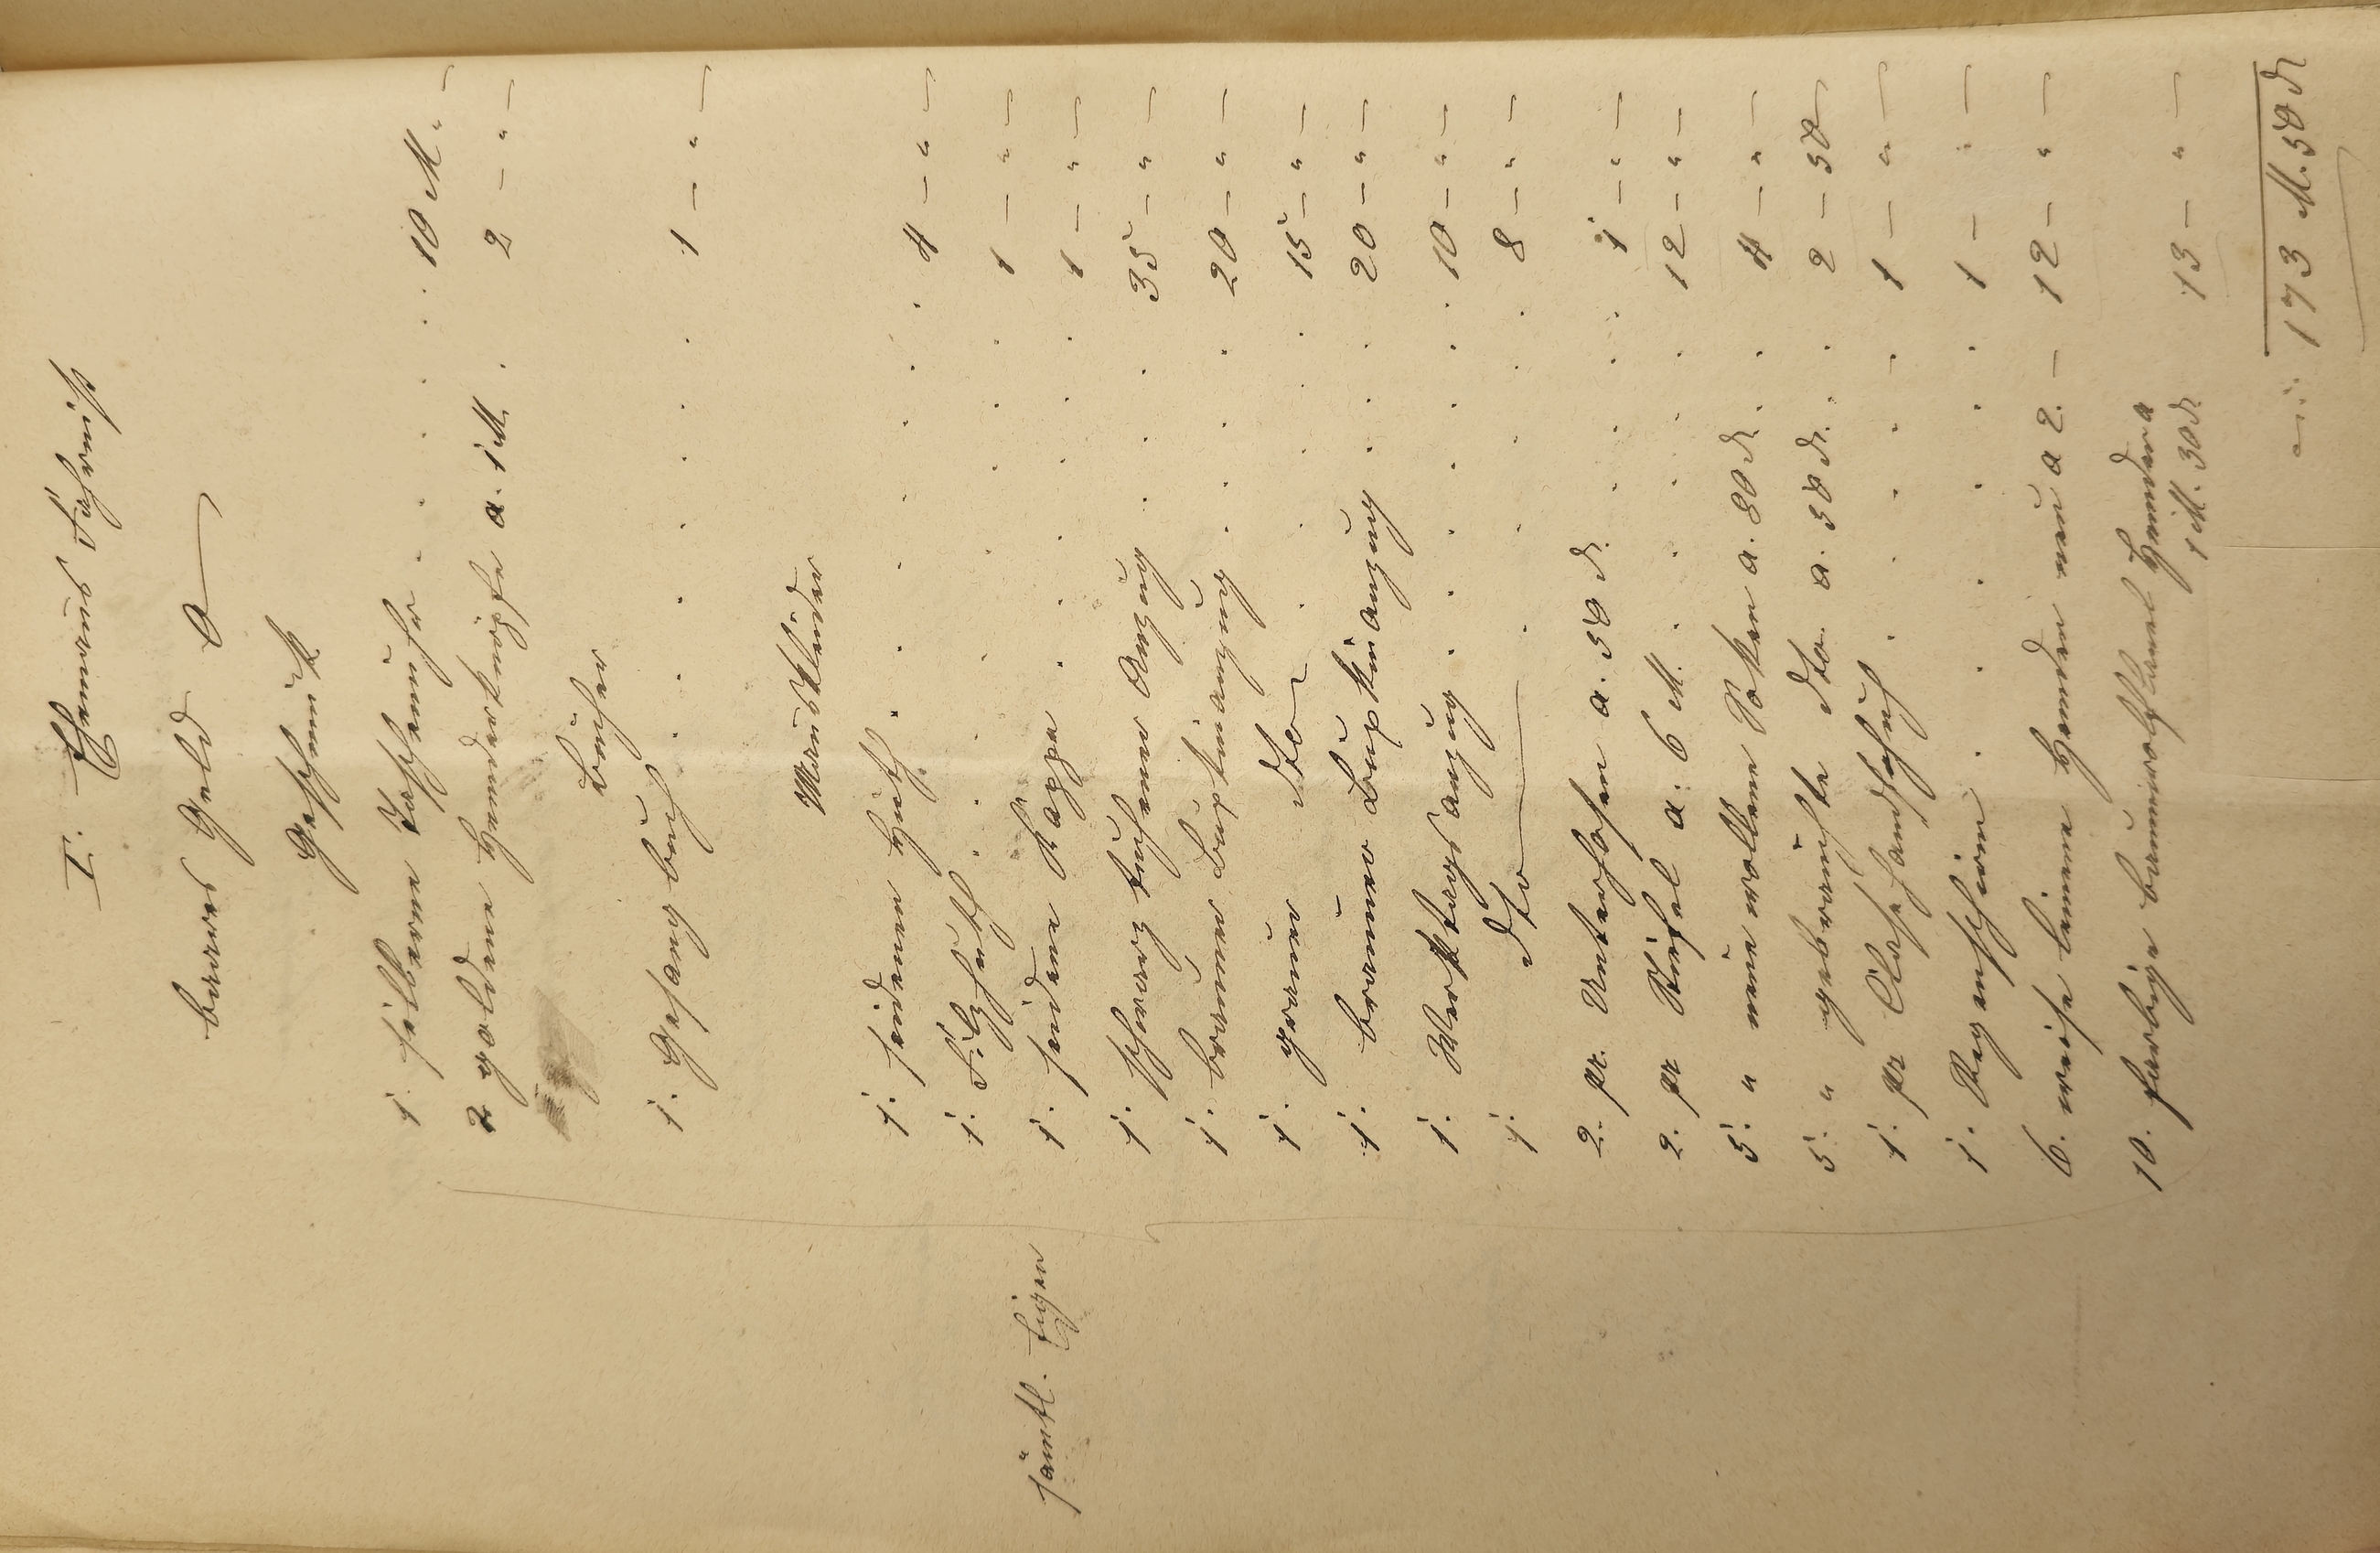 I. Ehemanns Fahrniß
baares Geld 0
Geschmuck
1. silberne Taschenuhr . . . . . 10 M. " —
2 goldene Hemderknöpfe a. 1 M. . 2 — " —
Bücher
1. Gesangbuch . . . . . . 1 — " —
Mannskleider
1. seidener Huth . . . . . . 4 — " —
1. Filzhuth . . . . . . 1 — " —
1. seidene Kappe . . . . . 1 — " —
1. schwarz tuchener Anzug . . . . 35 — " —
1. brauner Buxkinanzug . . . . 20 — " —
1. grauer dto . . . 15 — " —
1. brauner Buxkinanzug . . . 20 — " —
1. Werktagsanzug . . . . . 10 — " —
1. dto . . . . . 8 — " —
2. pr. Unterhosen a. 50 ₰. . . . 1 — " —
2. pr Stiefel a. 6 M. . . . . 12 — " —
5. " neue wollene Soken a. 80 ₰. . . 4 — " —
5. " gebrauchte dto. a. 50 ₰. . . 2 — 50
1. pr Handschuh . . . . . 1 — " —
1. Regenschirm . . . . . 1 — " —
6. weiße leinene Hemden neu a 2. — 12 — " —
10. farbige baumwollflanel Hemden a
1 M. 30 ₰. 13 — " —
173 M. 50 ₰
sämtl. Eigen